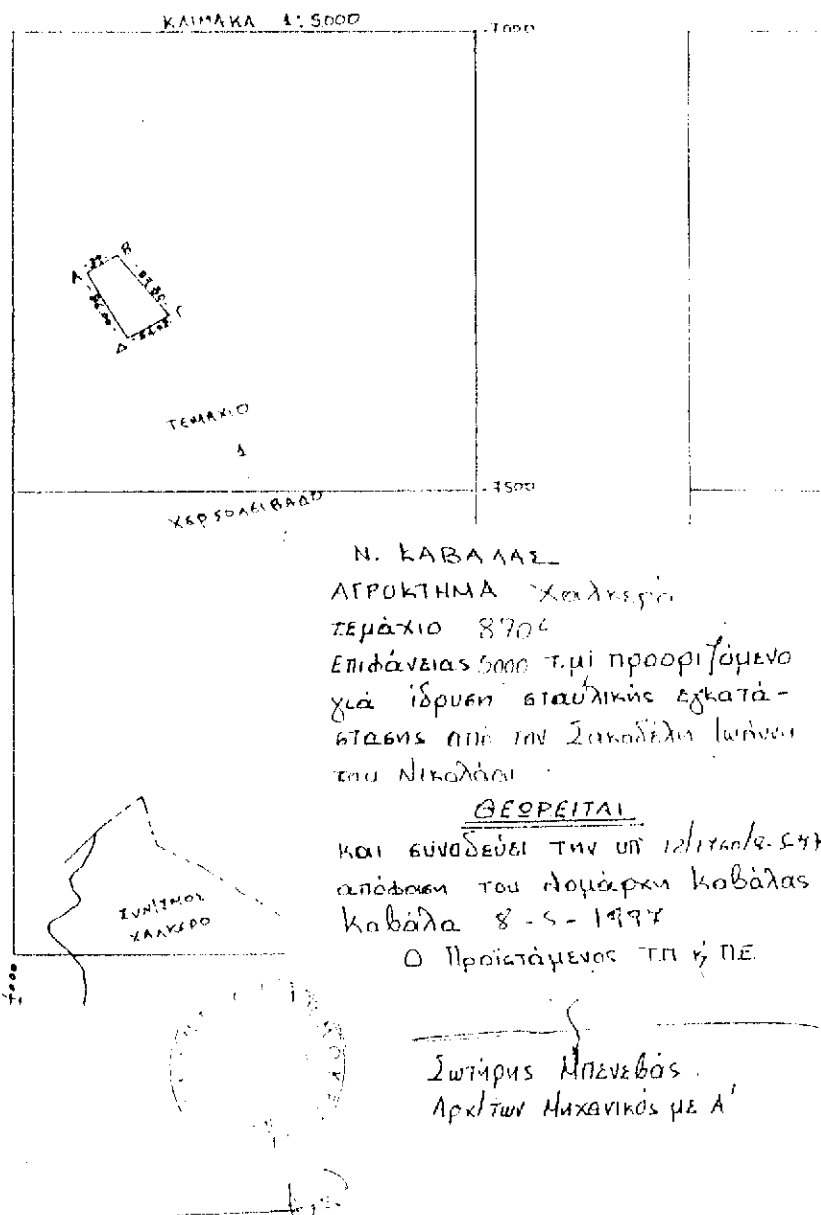 ΚΛΙΜΑΚΑ 1:5000
-7000
Α
Β
87.80
Γ
Δ
ΤΕΜΑΧΙΟ
1
-7500
ΧΕΡΣΟΛΕΙΒΑΔΟ
Ν. ΚΑΒΑΛΑΣ
ΑΓΡΟΚΤΗΜΑ Χαλκερό
τεμάχιο 870
Επιφάνειας 5000 τ.μ προοριζόμενο
γιά ίδρυση σταυλικής εγκατά-
στασης από τον Σακαδέλη Ιωάννη
του Νικολάου
ΘΕΩΡΕΙΤΑΙ
και συνοδεύει την υπ
απόφαση του Νομάρχη Καβάλας
Καβάλα 8-5-1997
Ο Προϊστάμενος Τ.Π ή Π.Ε.
ΣΥΝ/ΣΜΟΣ
ΧΑΛΚΕΡΟ
Σωτήρης Μπενεβός
Αρχ/των Μηχανικός με Α'